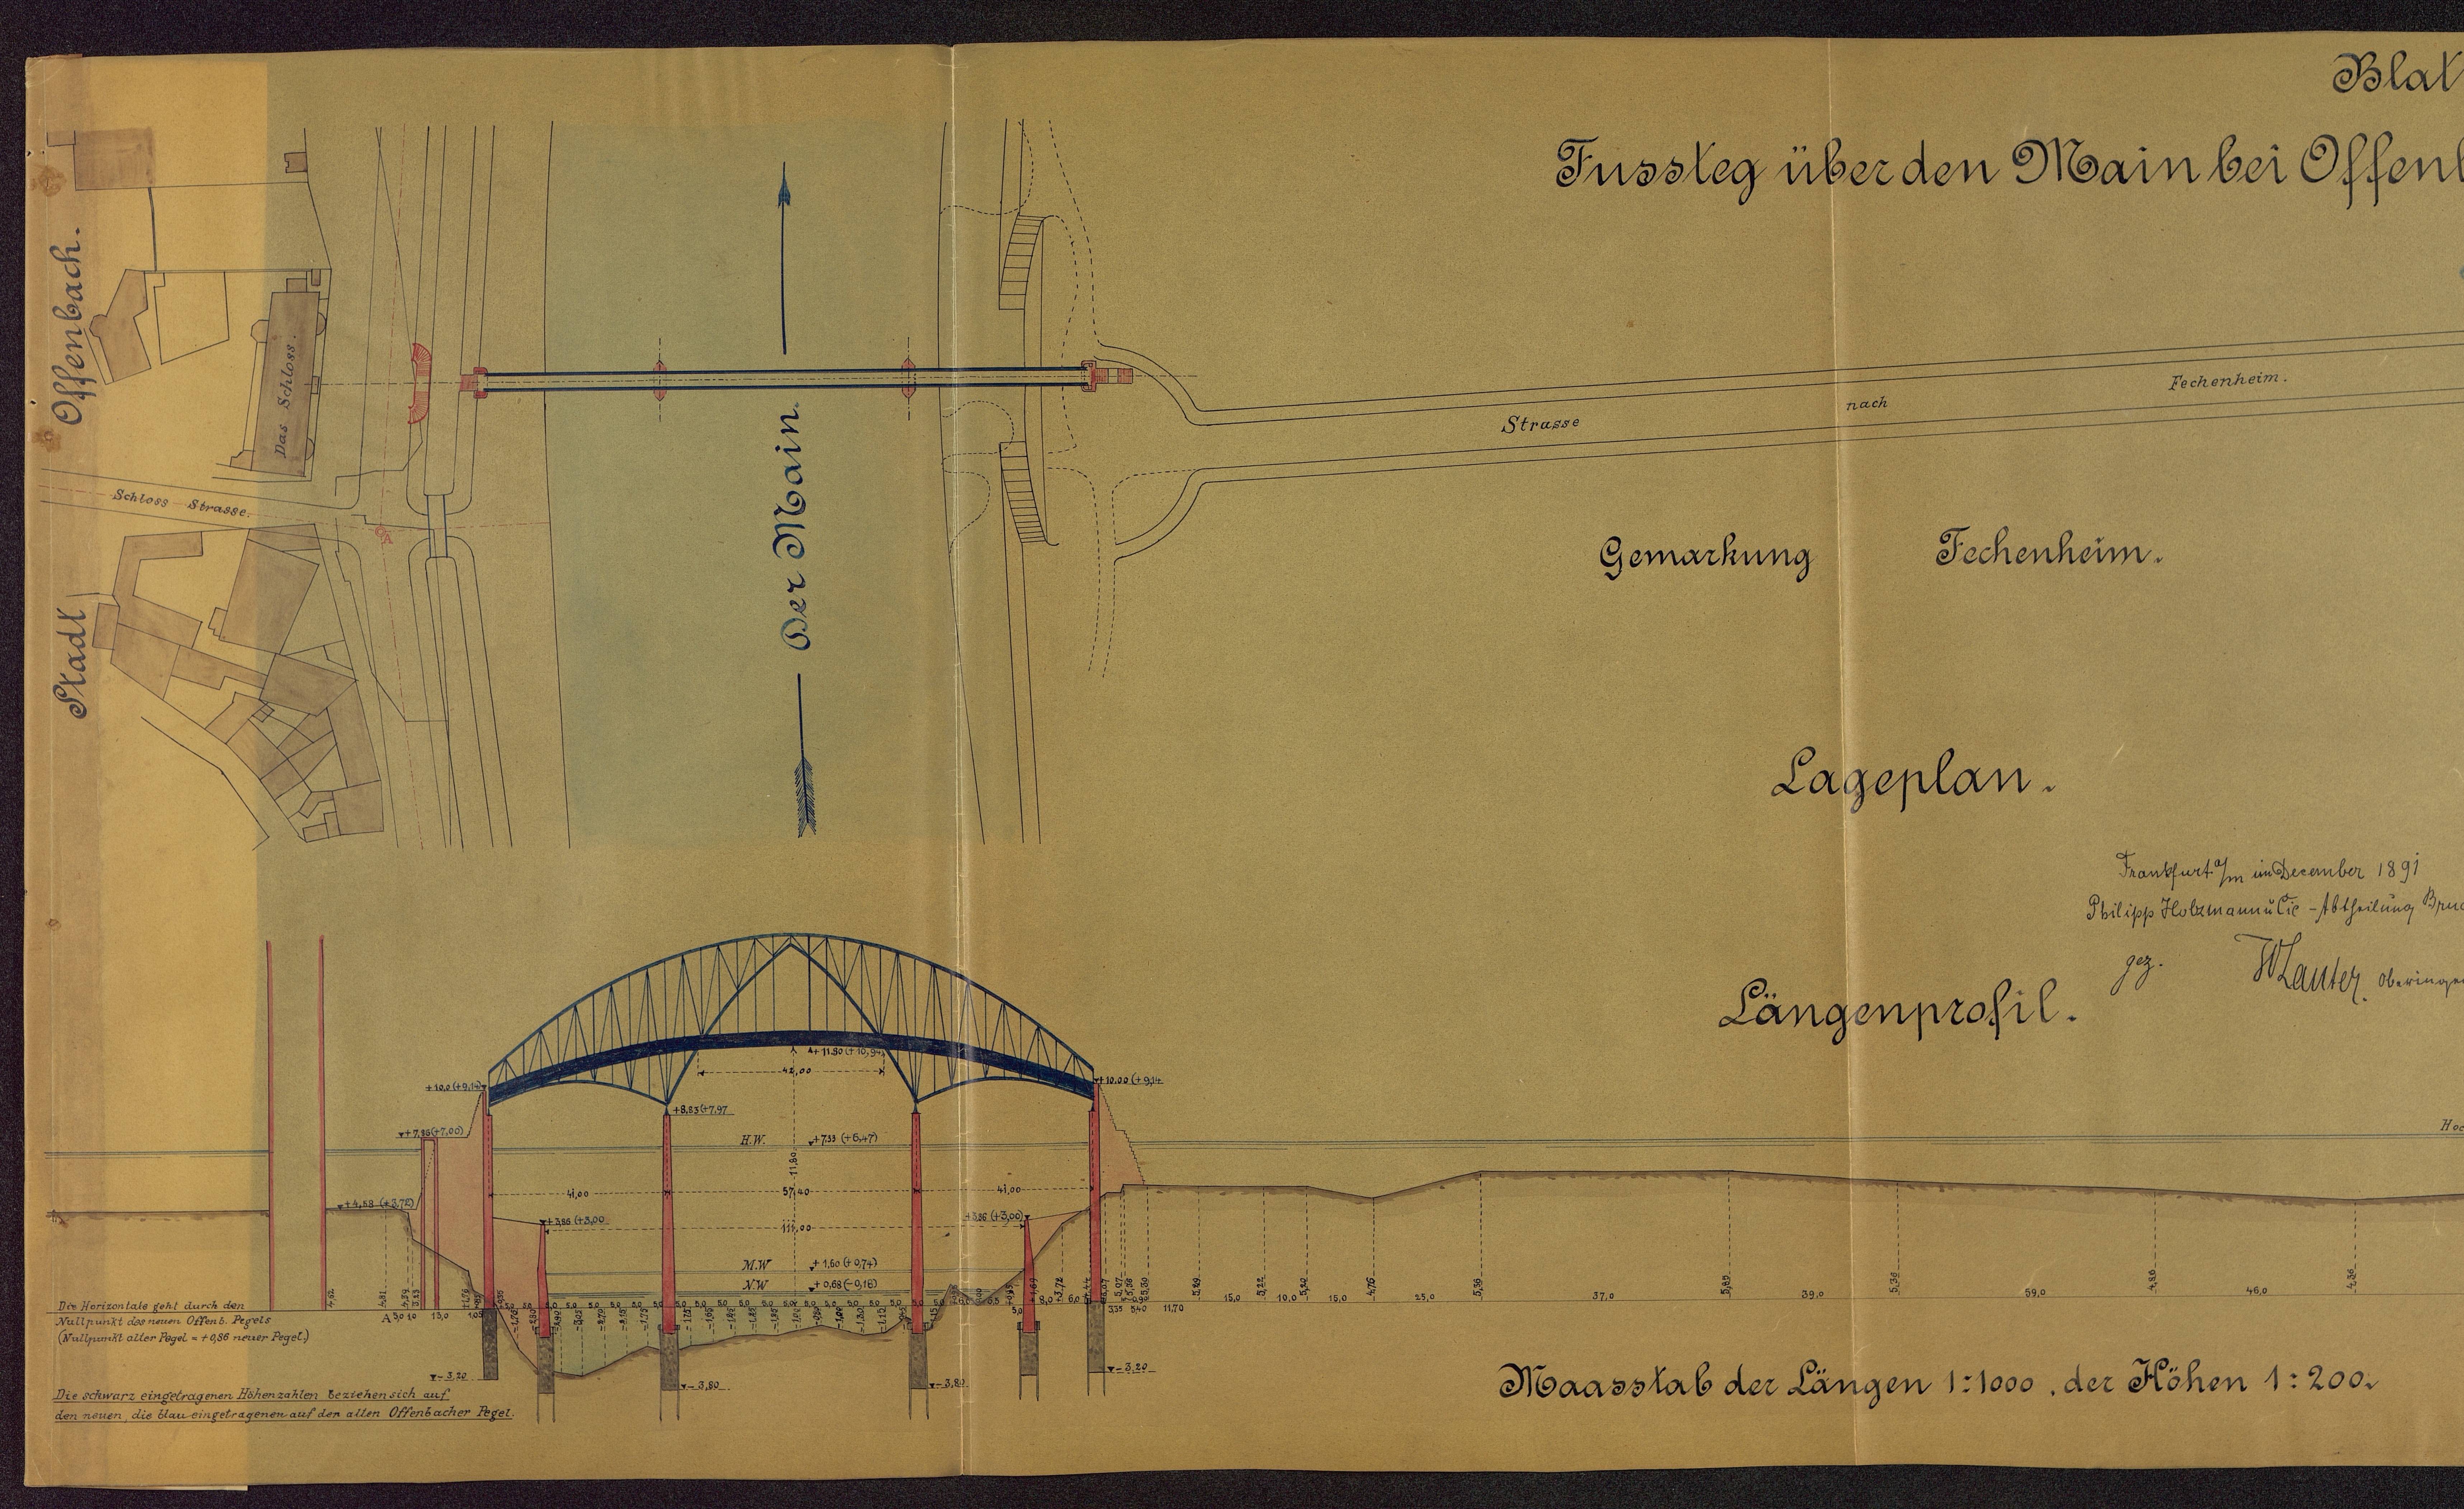 Blat
Fussteg über den Main bei Offenb
Stadt Offenbach.
Das Schloss.
Schloss Strasse.
A
Der Main.
Strasse nach Fechenheim.
Gemarkung Fechenheim.
Lageplan.
Frankfurt a/m im December 1891
Philipp Holzmann u Cie - Abtheilung Bruc
gez. WLauter. Oberingen
Längenprofil.
+ 11.80 (+ 10,94)
42,00
+ 10,0 (+ 9,14)
+ 10.00 (+ 9,14
+ 8,83 (+ 7,97
+ 7,86 (+ 7,00)
H.W. + 7,33 (+ 6,47)
Hoc
11,80
41,00 57,40 41,00
+ 4,58 (+ 3,72)
+ 3,86 (+ 3,00
+ 3,86 (+ 3,00)
111,00
M.W + 1,60 (+ 0,74)
N.W + 0,68 (- 0,18)
5,29 5,22 5,20 4,76 5,39 5,85 5,36 4,86 4,36
11,70 15,0 10,0 15,0 25,0 37,0 39,0 59,0 46,0
Die Horizontale geht durch den
Nullpunkt des neuen Offenb. Pegels
(Nullpunkt alter Pegel = + 0,86 neuer Pegel.)
A
- 3,20
- 3,80
- 3,80
- 3,20
Die schwarz eingetragenen Höhenzahlen beziehen sich auf
den neuen, die blau eingetragenen auf den alten Offenbacher Pegel.
Maasstab der Längen 1:1000, der Höhen 1:200.